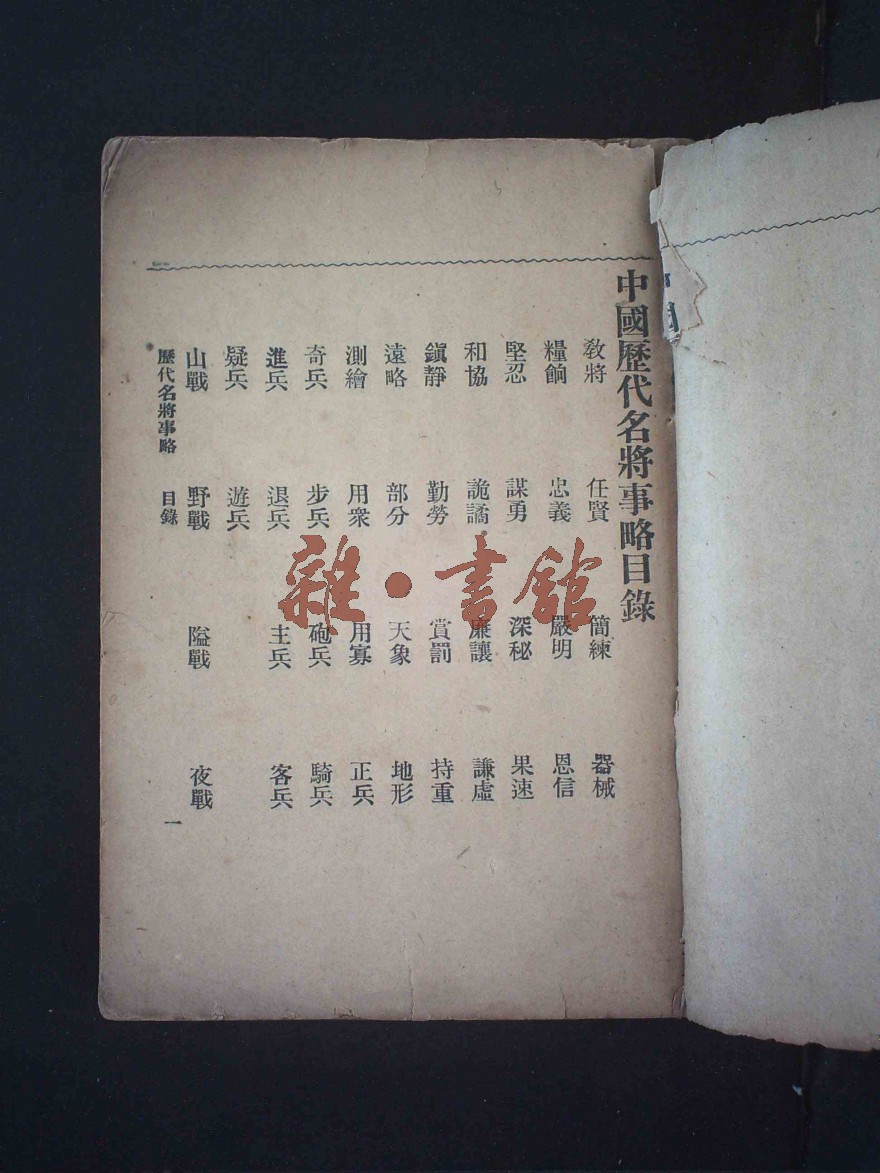 中國歷代名將事略目錄
教將 任賢 簡練 器械
糧餉 忠義 嚴明 恩信
堅忍 謀勇 深秘 果速
和協 詭譎 廉讓 謙虛
鎭靜 勤勞 賞罰 持重
遠略 部分 天象 地形
測繪 用衆 用寡 正兵
奇兵 步兵 砲兵 騎兵
進兵 退兵 主兵 客兵
疑兵 遊兵
山戰 野戰 隘戰 夜戰
歷代名將事略 目錄 一
雜·書館